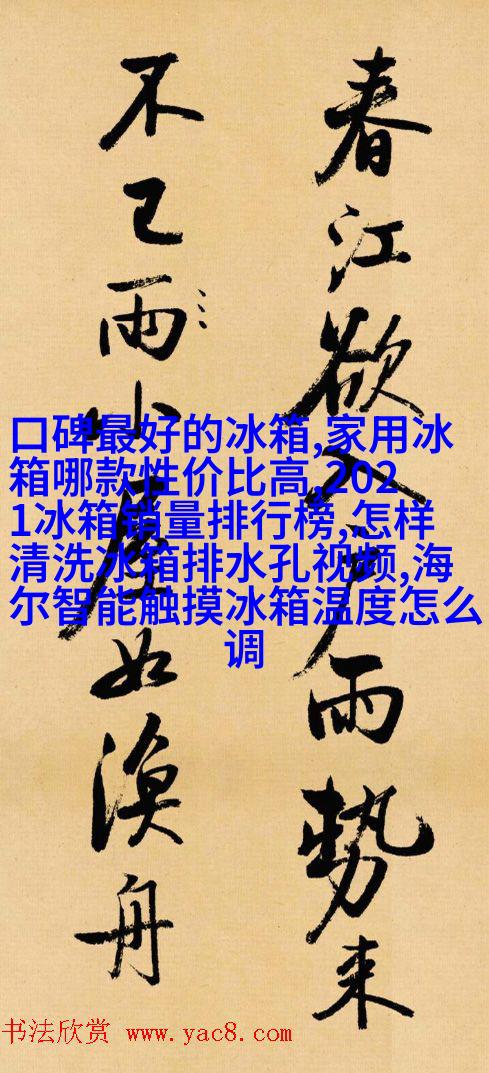 春江欲入户雨勢来
不已雨小屋如漁舟
口碑最好的冰箱,家用冰
箱哪款性价比高,202
1冰箱销量排行榜,怎样
清洗冰箱排水孔视频,海
尔智能触摸冰箱温度怎么
调
书法欣赏 www.yac8.com